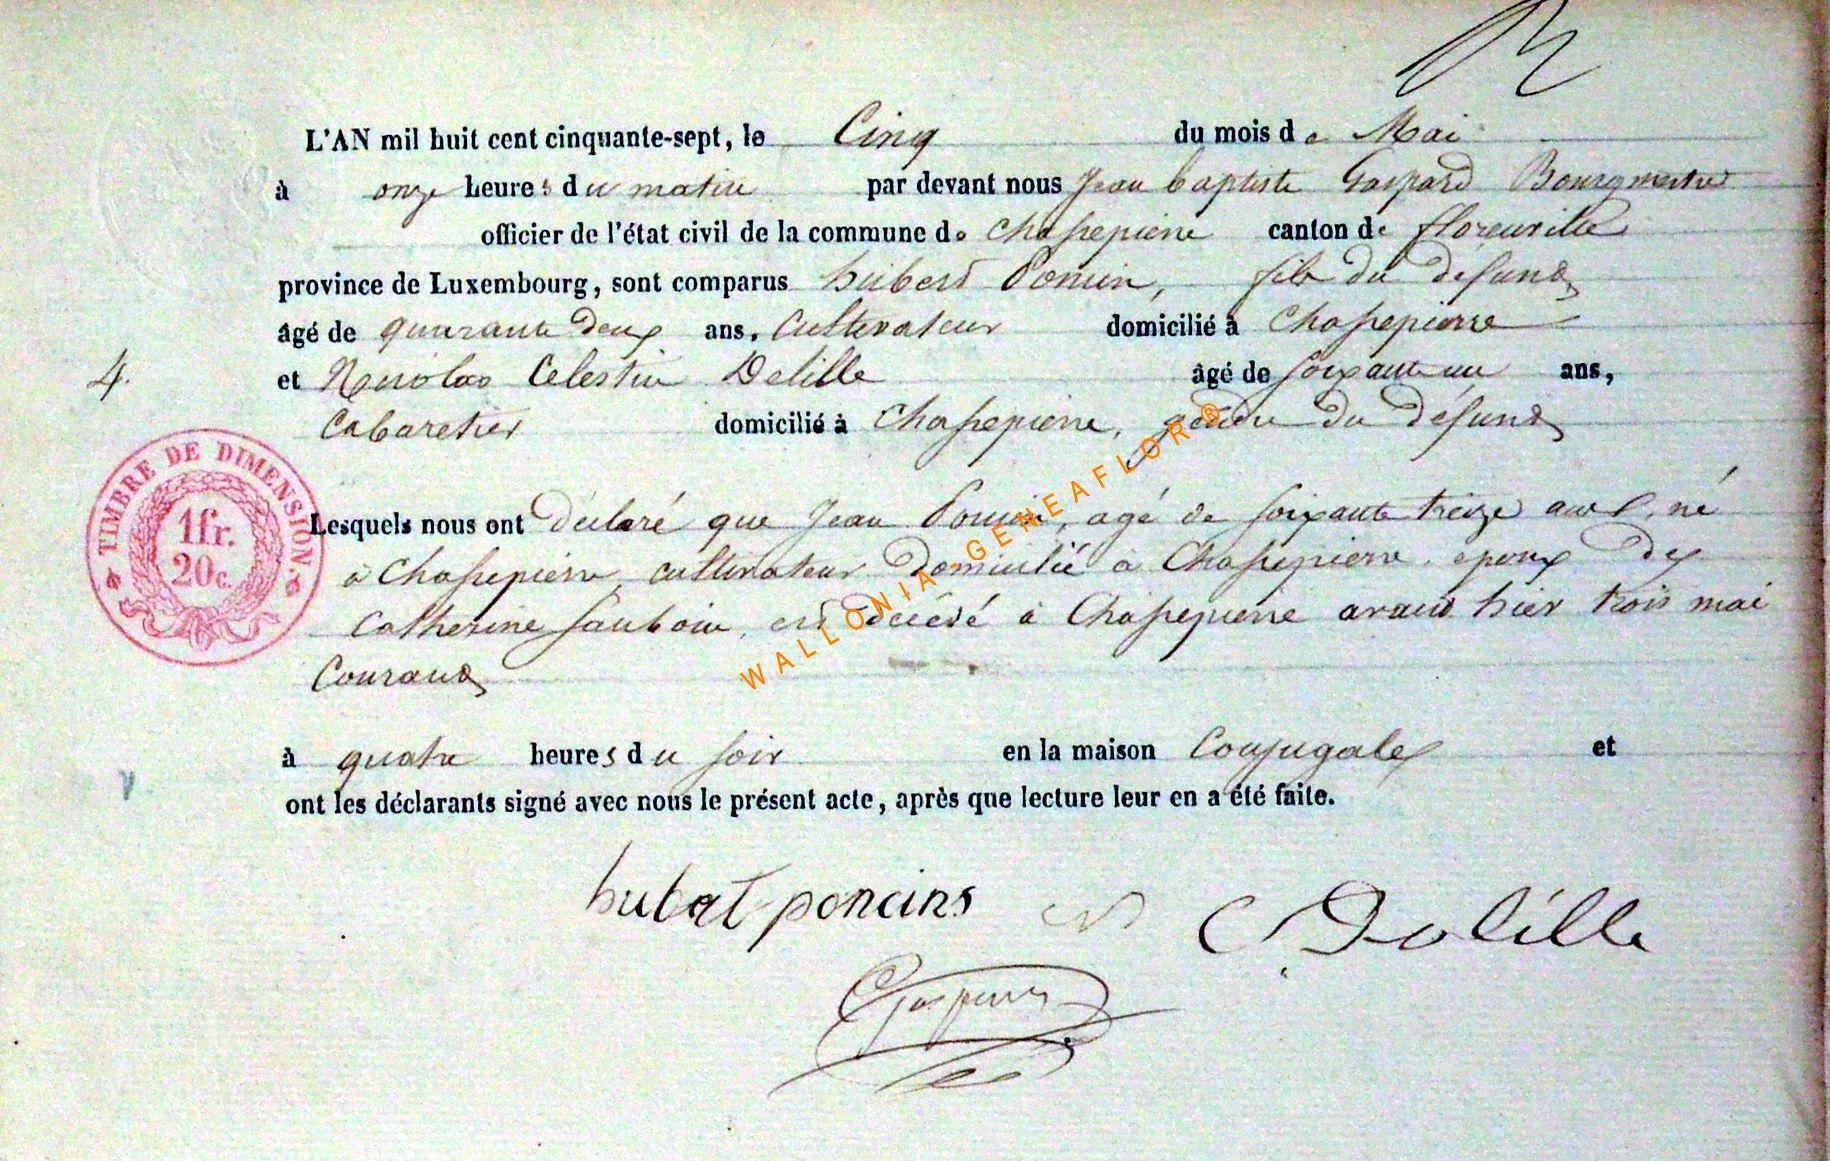 L'AN mil huit cent cinquante-sept, le Cinq du mois de Mai
à onze heures du matin par devant nous Jean baptiste Gaspard Bourgmestre
officier de l'état civil de la commune de Chassepierre canton de florenville
province de Luxembourg, sont comparus hubert Poncin, fils du defunt
âgé de quarante deux ans, Cultivateur domicilié à Chassepierre
4.
et Nicolas Celestin Delille âgé de soixante un ans,
Cabaretier domicilié à Chassepierre, gendre du défunt
TIMBRE DE DIMENSION.
1fr.
20c.
Lesquels nous ont déclaré que Jean Poncin, agé de soixante treize ans, né
à Chassepierre, cultivateur domicilié à Chassepierre, epoux de
Catherine, est décédé à Chassepierre avant hier trois mai
Courant
à quatre heures du soir en la maison Conjugale et
ont les déclarants signé avec nous le présent acte, après que lecture leur en a été faite.
hubert poncins
C Delille
WALLONIA-GENEAFLOR®